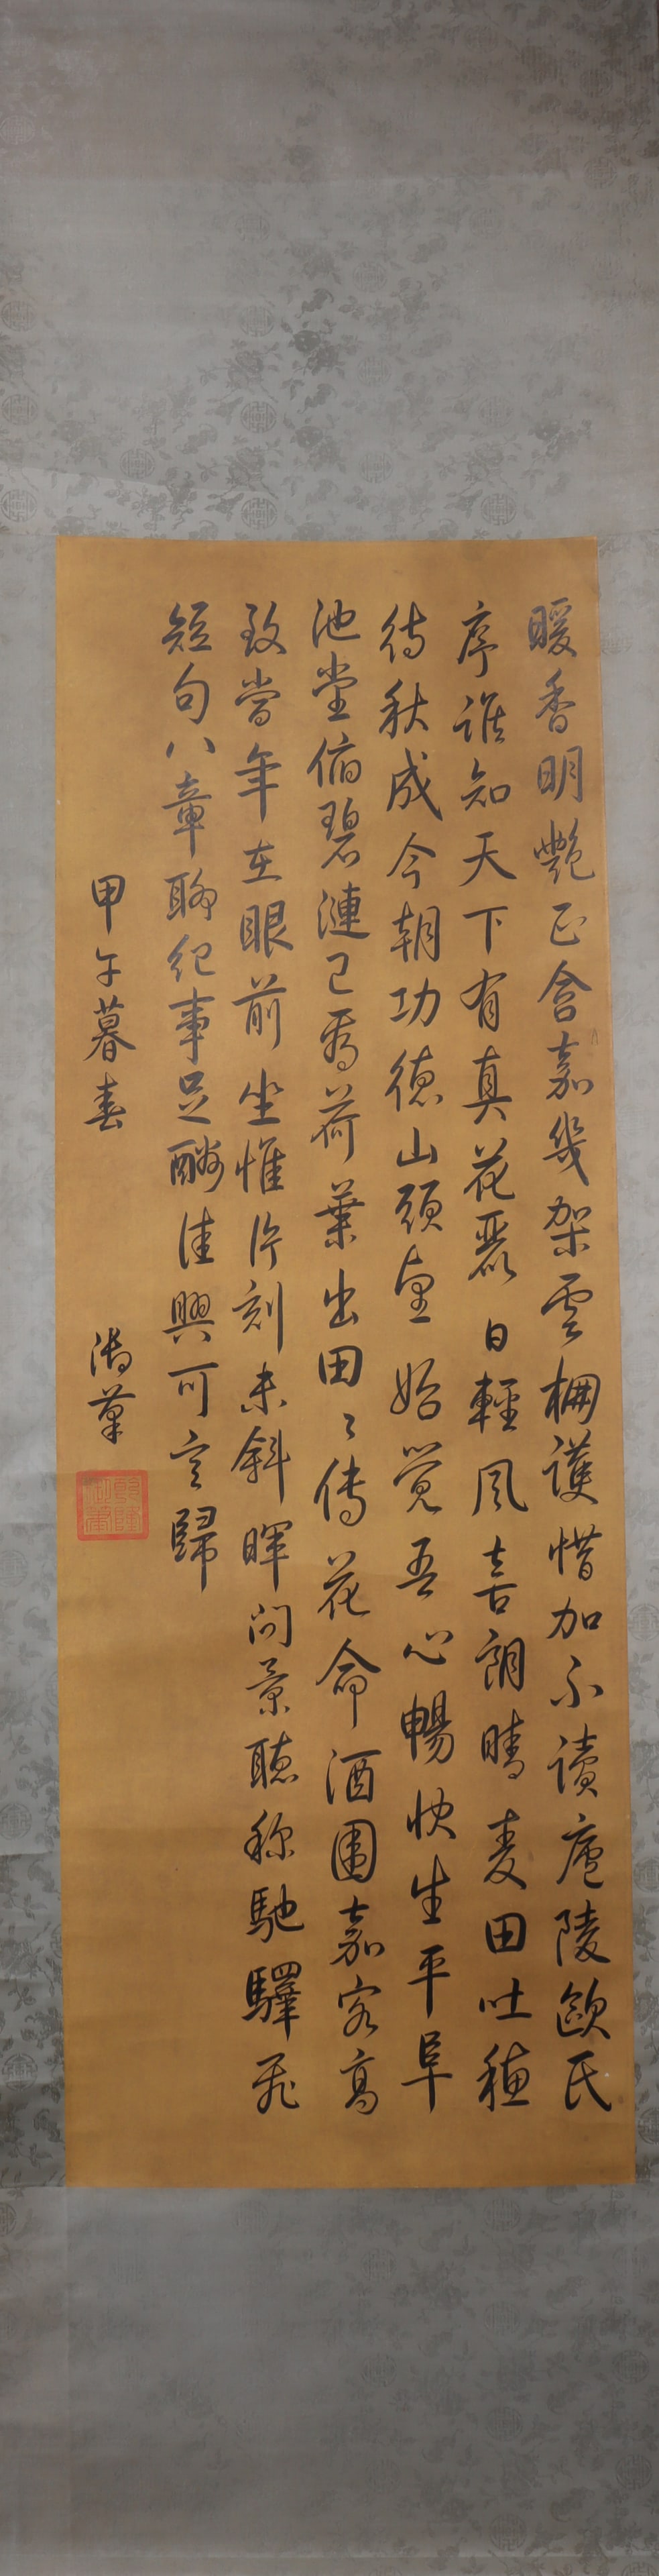 暖香明艷正含嘉幾架雲棚護惜加不讀廬陵歐氏
序誰知天下有真花麗日輕風喜朗晴麦田吐穗
待秋成今朝功德山頭望始覺吾心暢快生平阜
池堂俯碧漣已看荷葉出田々傳花命酒圍嘉客高
致當年在眼前坐惟片刻未斜暉問景聽称馳驛飛
短句八章聊紀事足酬佳興可言歸
甲午暮春
御筆
乾隆御筆